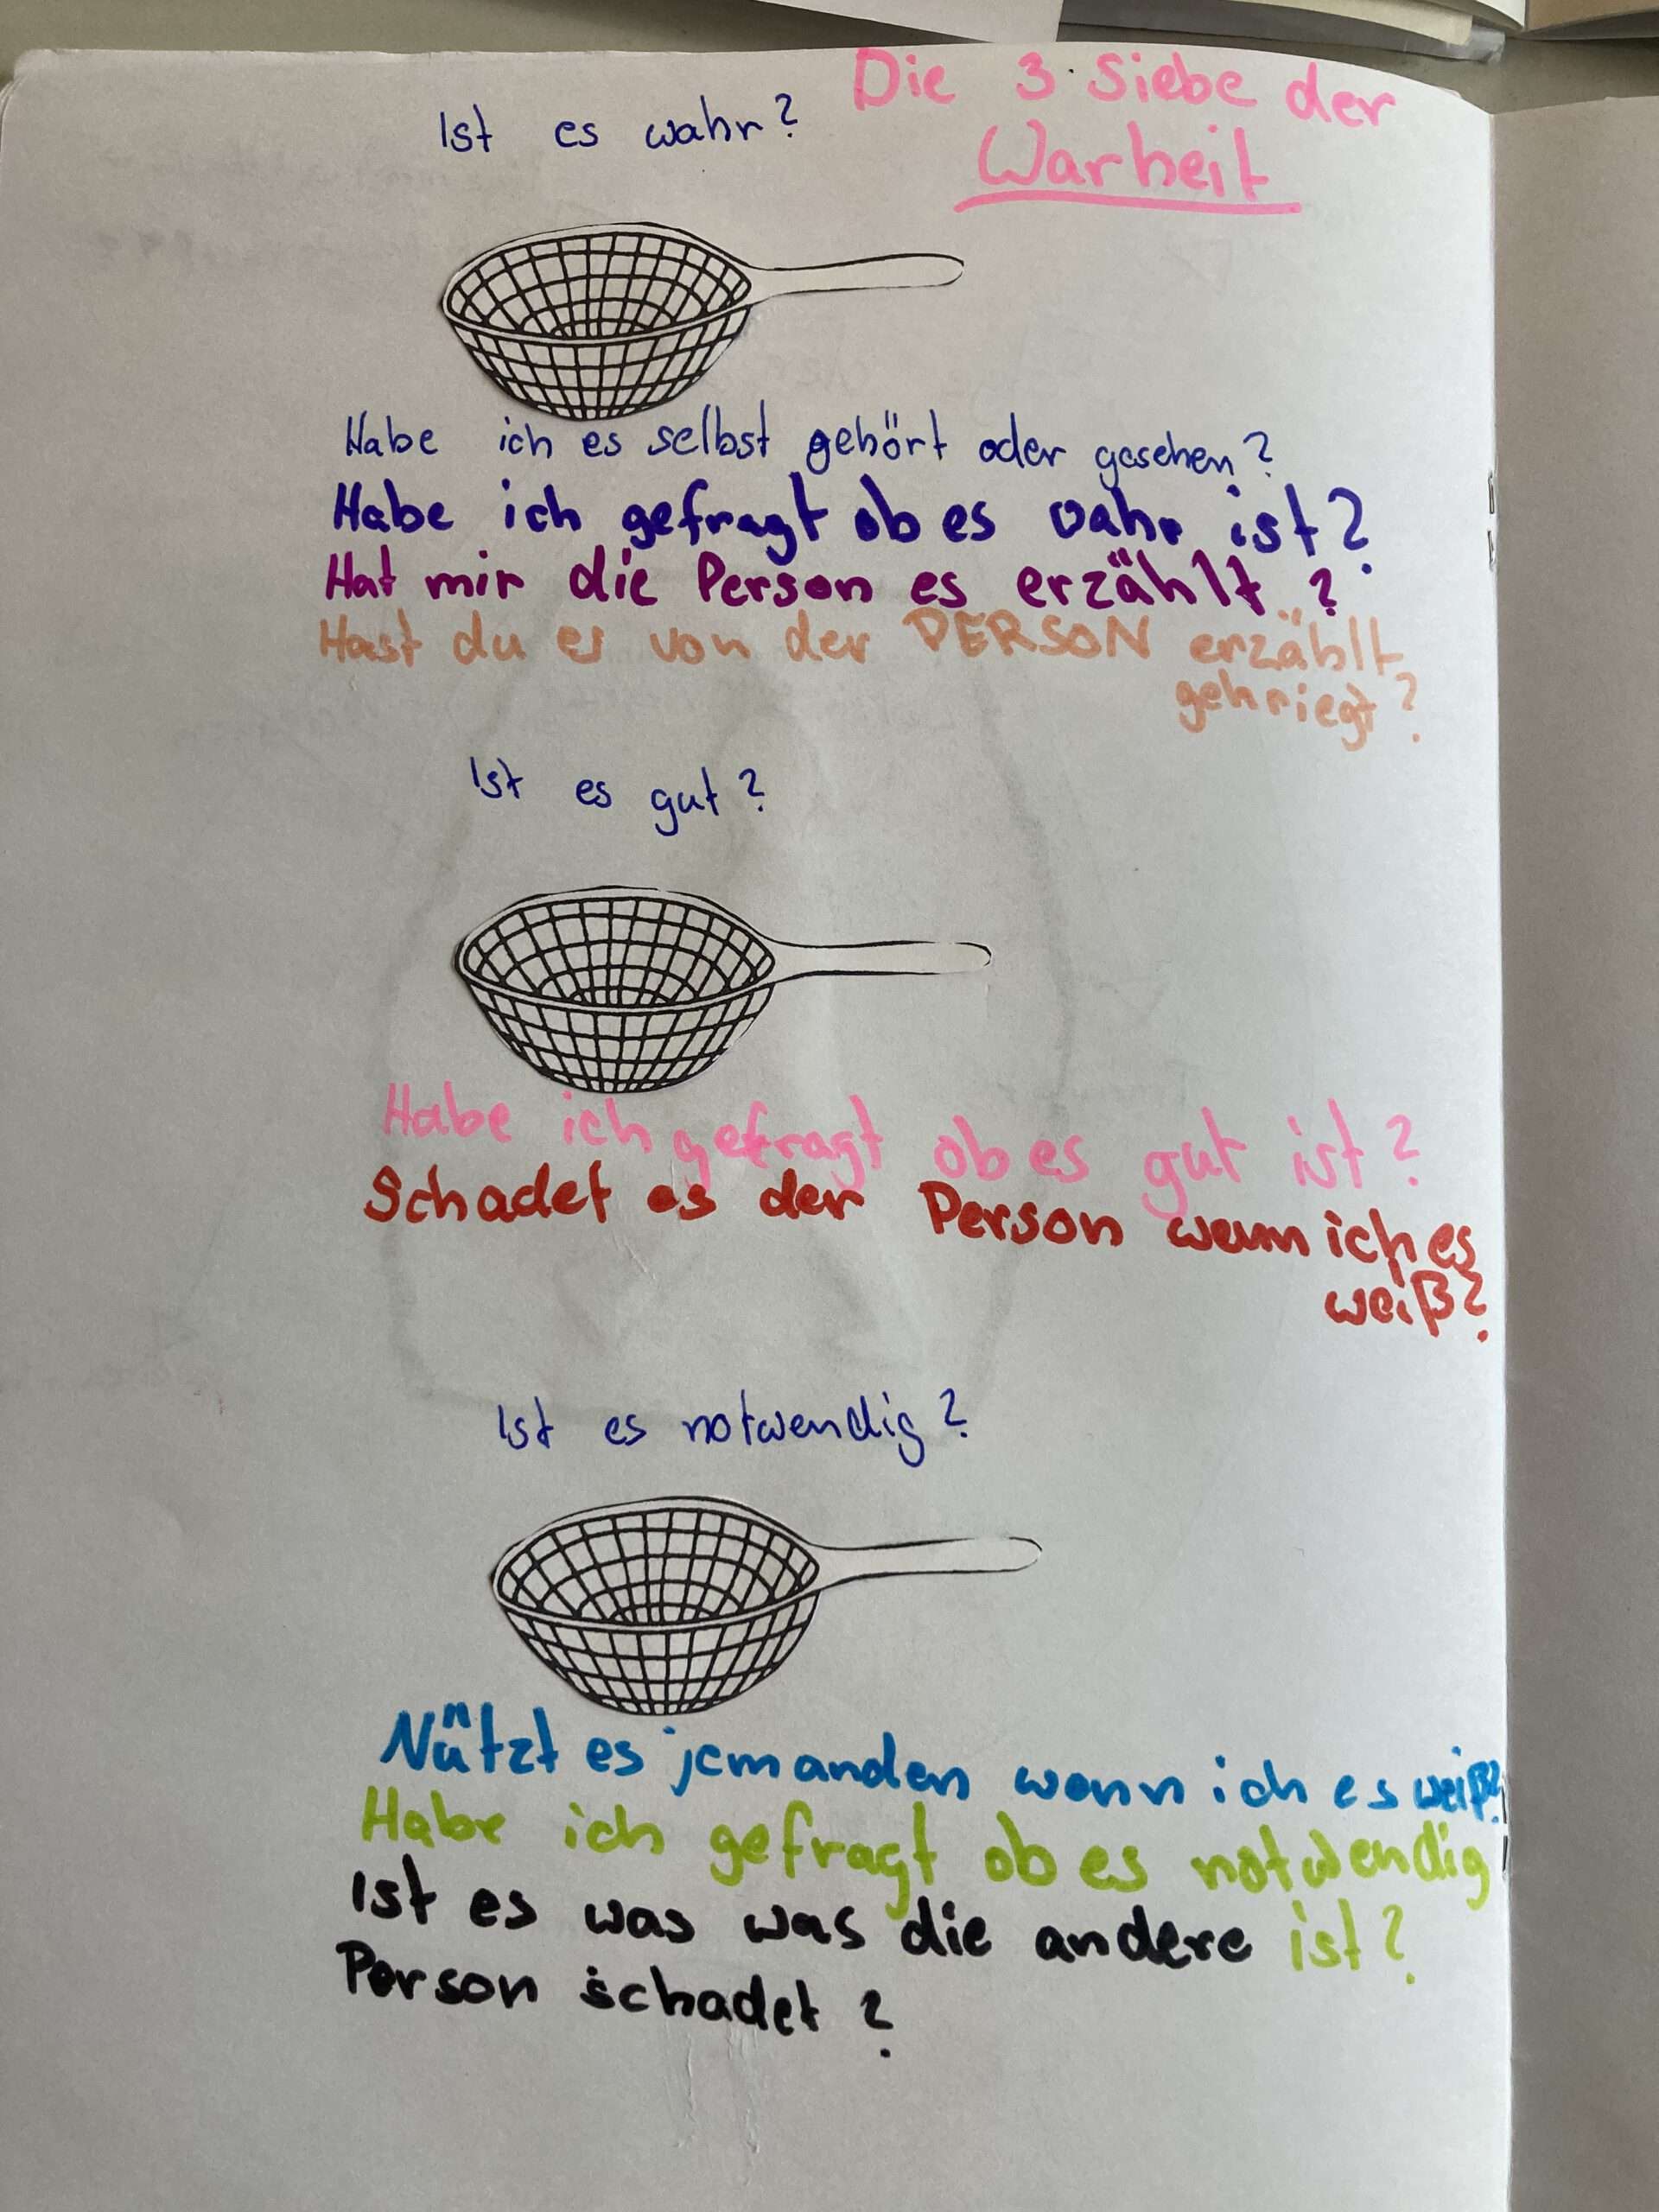 Die 3 Siebe der
Warheit
Ist es wahr?
Habe ich es selbst gehört oder gesehen?
Habe ich gefragt ob es vahr ist?
Hat mir die Person es erzählt?
Hast du es von der PERSON erzählt
gekriegt?
Ist es gut?
Habe ich gefragt ob es gut ist?
Schadet es der Person wenn ich es
weiß?
Ist es notwendig?
Nützt es jemanden wenn ich es weiß?
Habe ich gefragt ob es notwendig
ist?
Ist es was was die andere
Person schadet?